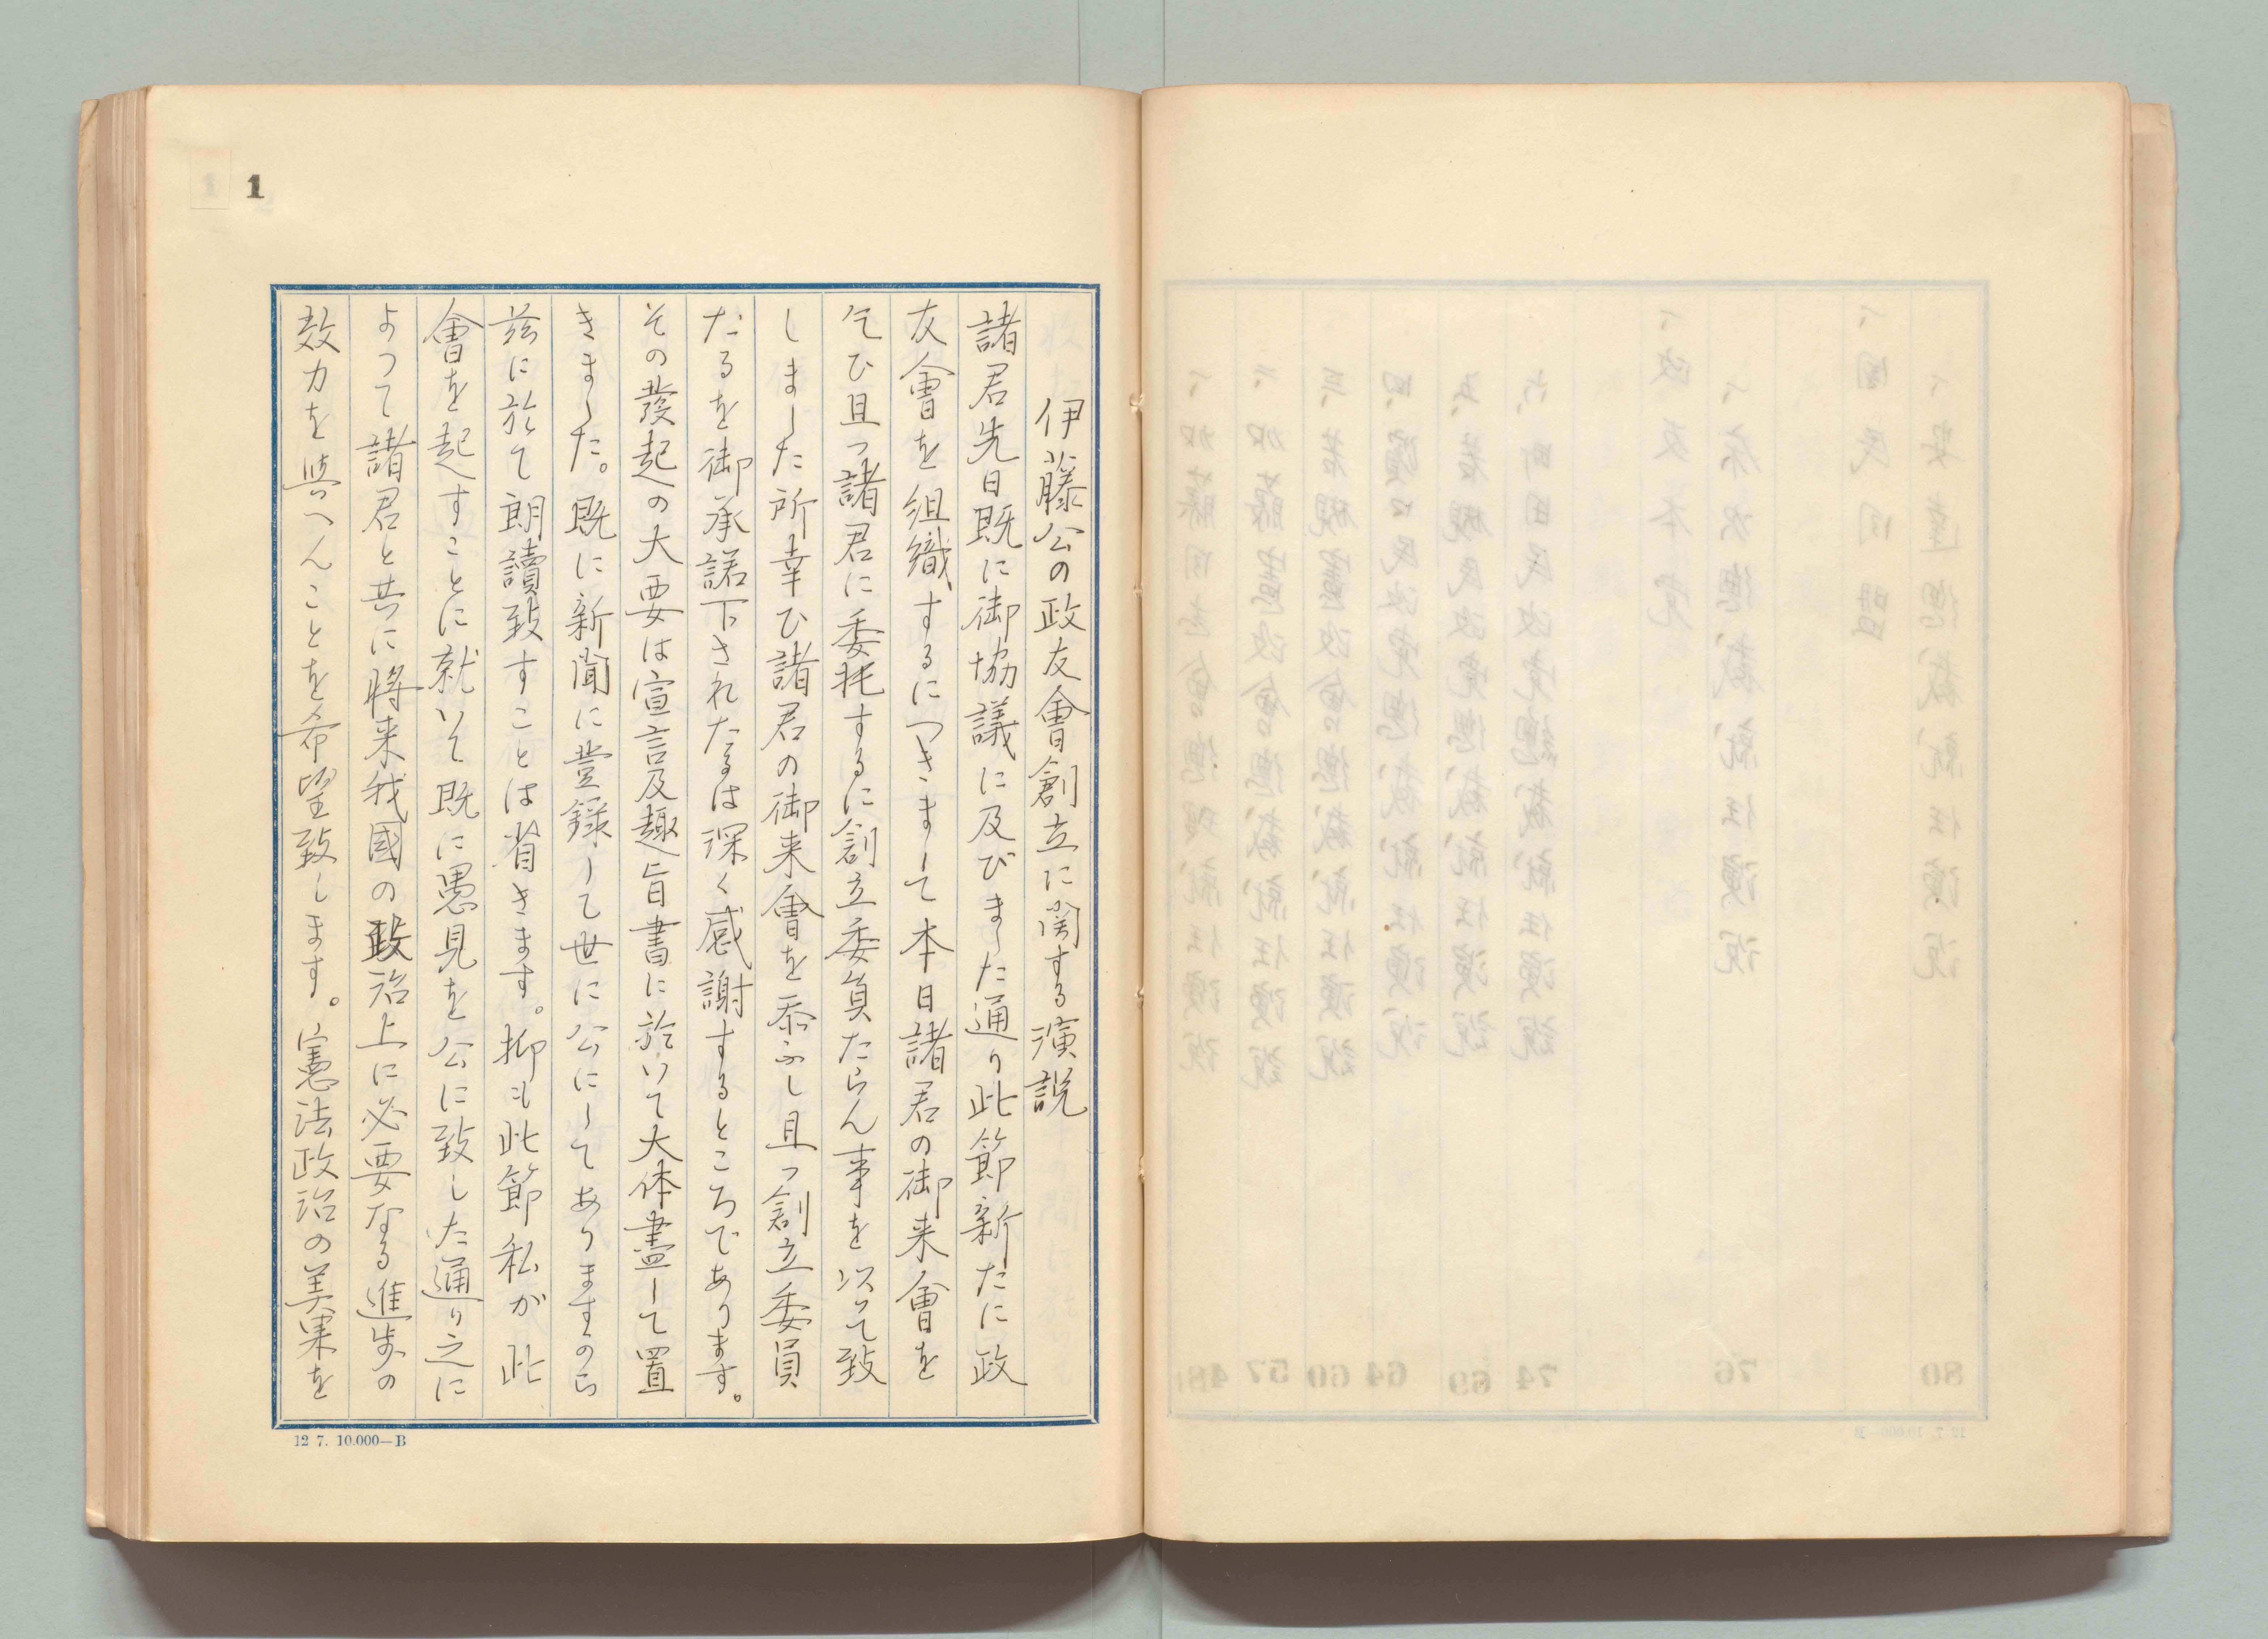 1
伊藤公の政友會創立に関する演説
諸君先日既に御協議に及びました通り此節新たに政
友會を組織するにつきまして本日諸君の御来會を
乞ひ且つ諸君に委托するに創立委員たらん事を以て致
しました所幸ひ諸君の御来會を忝ふし且つ創立委員
たるを御承諾下されたるは深く感謝するところであります。
その發起の大要は宣言及趣旨書に於いて大体盡して置
きました。既に新聞に登錄して世に公にしてありますから
茲に於て朗讀致すことは省きます。抑も此節私が此
會を起すことに就いて既に愚見を公に致した通り之に
よつて諸君と共に將来我國の政治上に必要なる進歩の
效力を與へんことを希望致します。憲法政治の美果を
12 7. 10.000—B